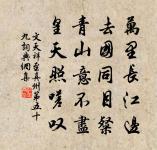 萬里長江邊
去國同王粲
青山意不盡
皇天照嗟叹
文天祥至真州第五十
九詞典網集